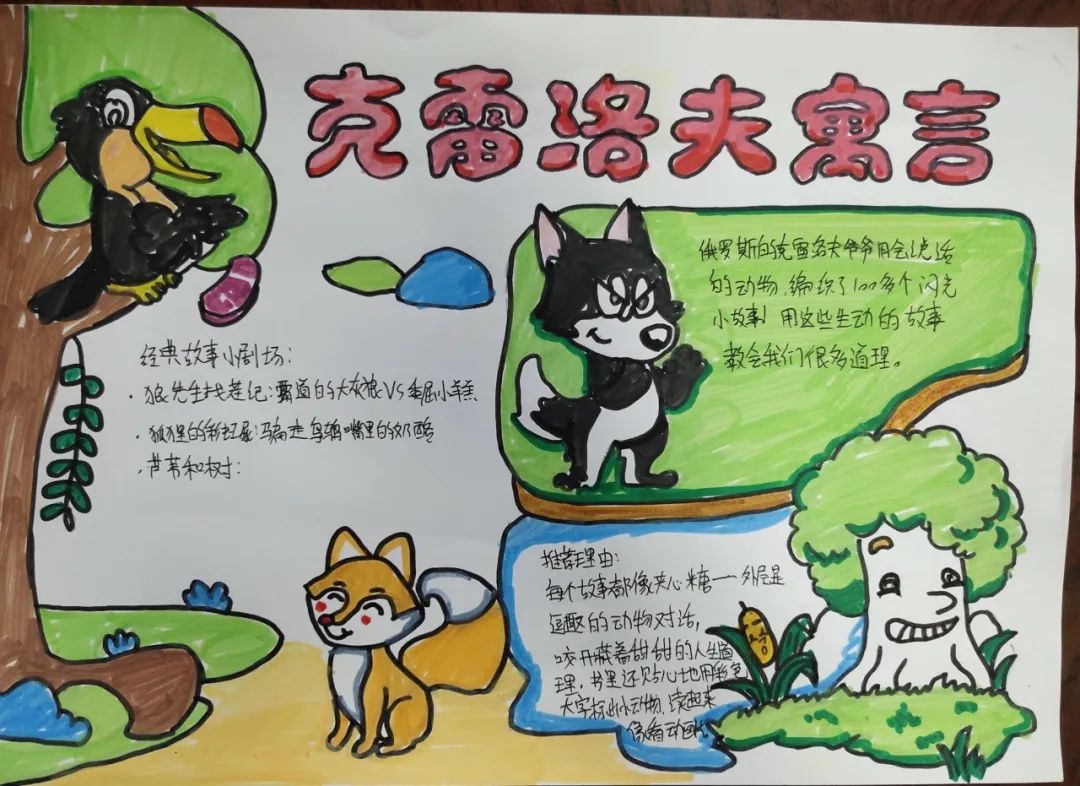 克雷洛夫寓言
俄罗斯的克雷洛夫爷爷用会说话
的动物,编织了100多个闪光
小故事!用这些生动的故事
教会我们很多道理。
经典故事小剧场:
·狼先生找茬记:霸道的大灰狼VS委屈小羊羔
·狐狸的彩虹屁:骗走乌鸦嘴里的奶酪
·芦苇和树:
推荐理由:
每个故事都像夹心糖——外层是
逗趣的动物对话,
咬开藏着甜甜的人生道
理,书里还贴心地用彩色
大字标出小动物,读起来
像看动画